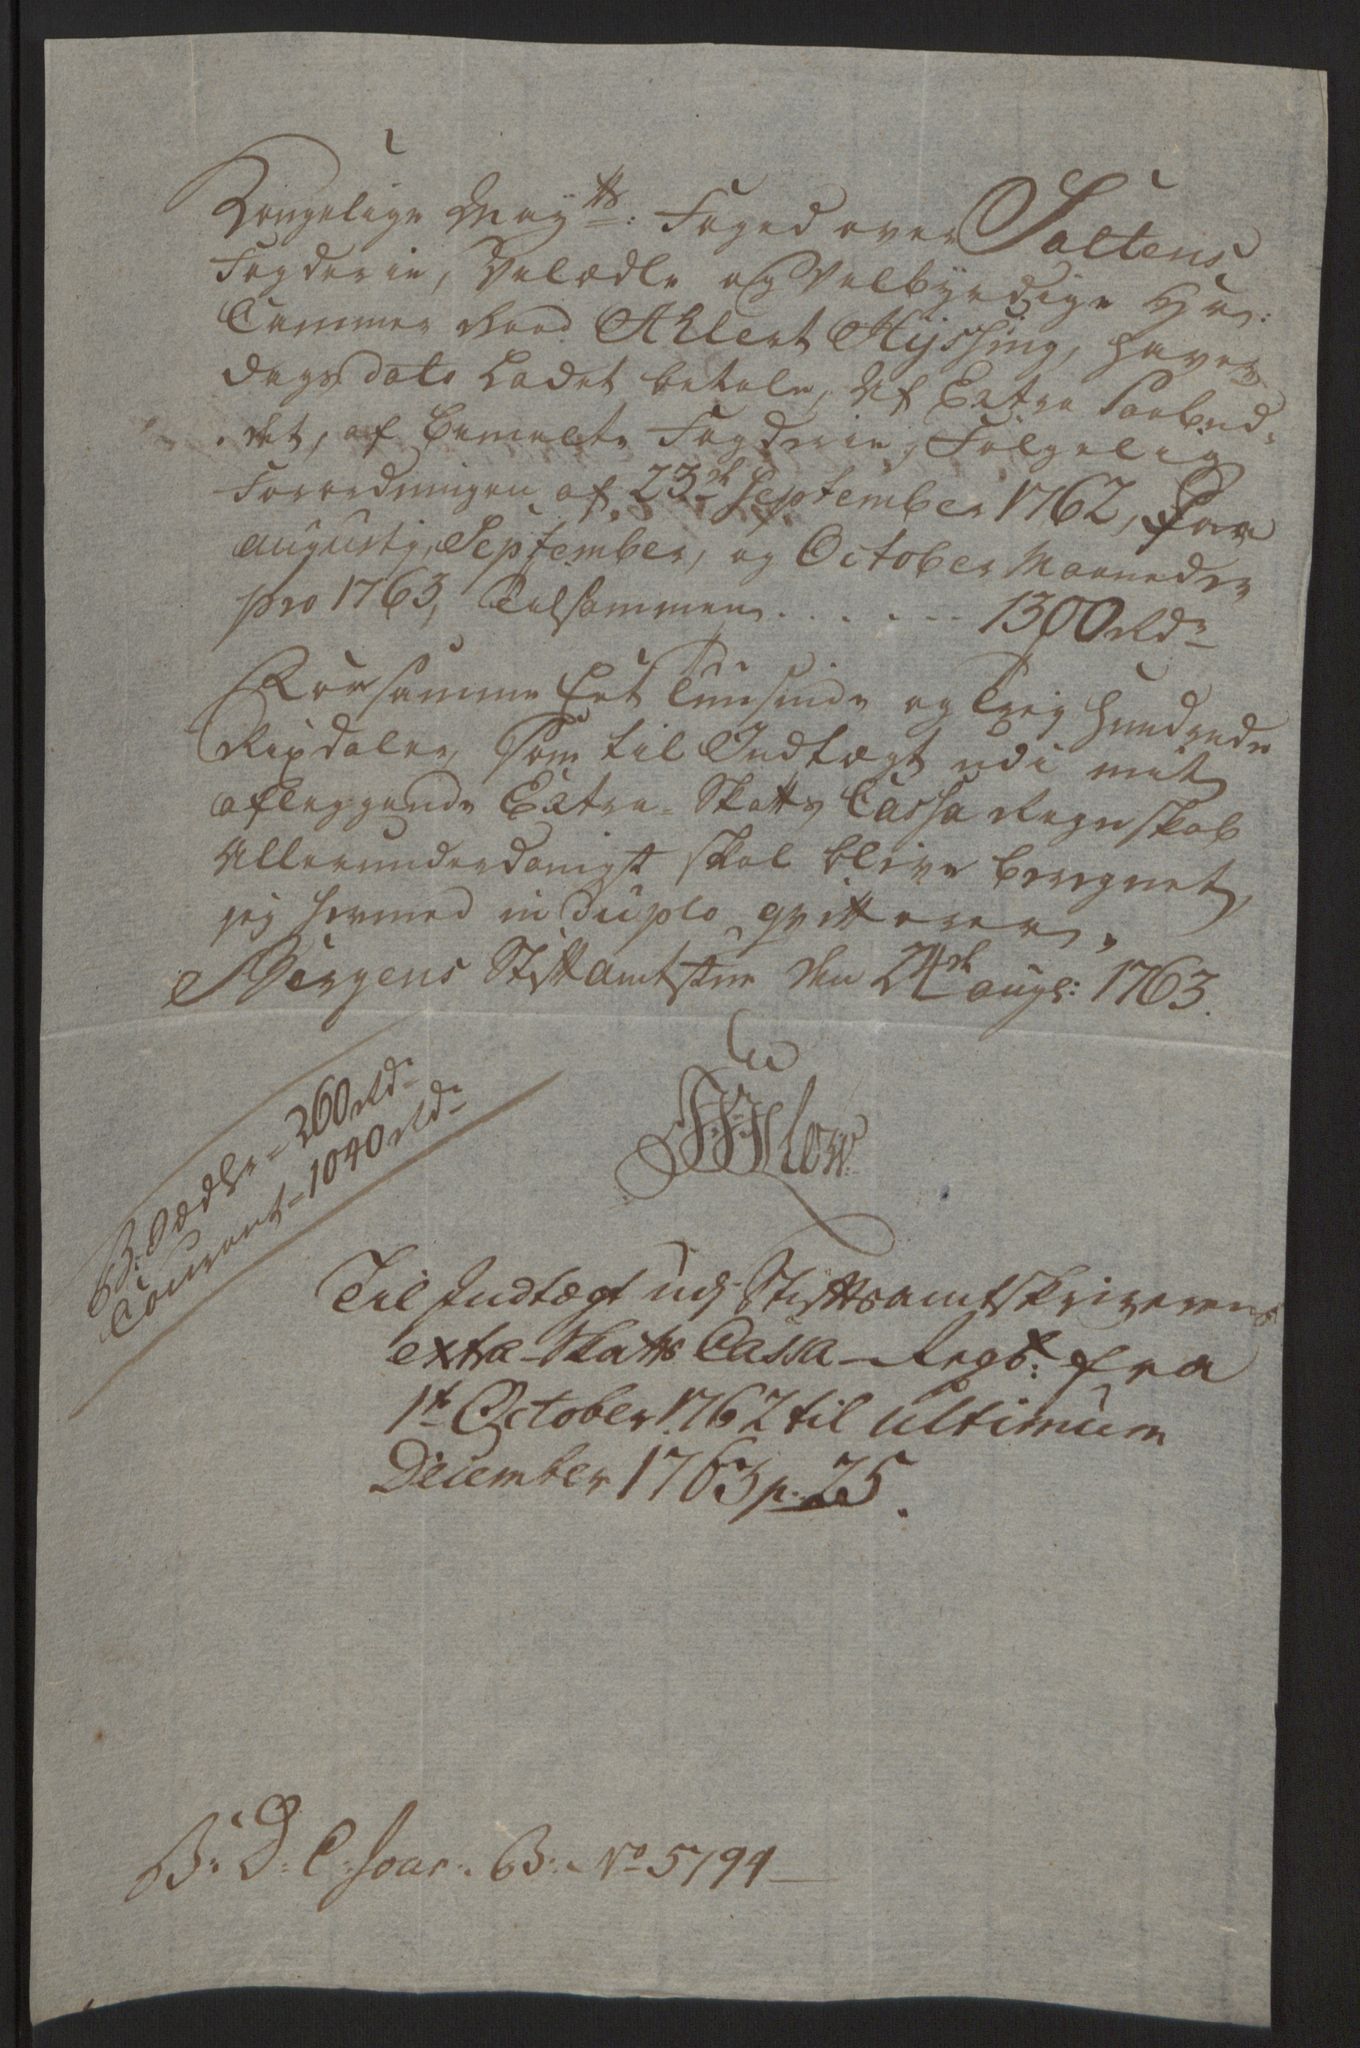 Kongelige May:ts: Foged over Saltens
Fogderie, Velædle og Velbyrdige Hr:
Cammer Raad Ahlert Hÿssing, haver
dags dato Ladet betale, Af Extra Paabud-
det, af bemelte Fogderie, Følgelig
Forordningen af 23de September 1762, for
augustj, September, og October Maaneder
pro 1763, Tilsammen . . . . . . 1300 Rdr
For samme Eet Tusinde og Trej Hundrede
Rixdaler, Som til Indtægt udi mit
aflæggende Extra-Skatts Cassa Regnskab
Allerunderdanigst skal blive beregnet,
jeg hermed in duplo qvitterer.
Bergens Stiftamtstue den 24de augs: 1763.
Flow
B: Sædler = 260 Rdr
Courant = 1040 Rdr
Til Indtægt udj Stiftsamtskriverens
extra Skatts Cassa-Regsk: fra
1te October 1762 til ultimum
December 1763 p. 25.
B: D: C: Jour: B: No 5794